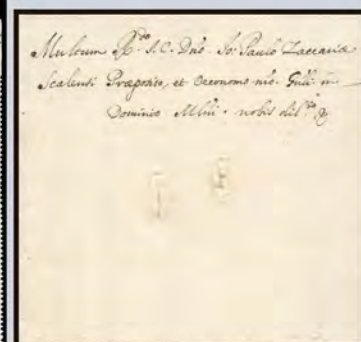 Multum R.do J.C. Dno Jo: Paulo Zaccaria
Scalensi Præposito, et Oeconomo nro Gnli in
Dominio Mlni nobis dil.mo &